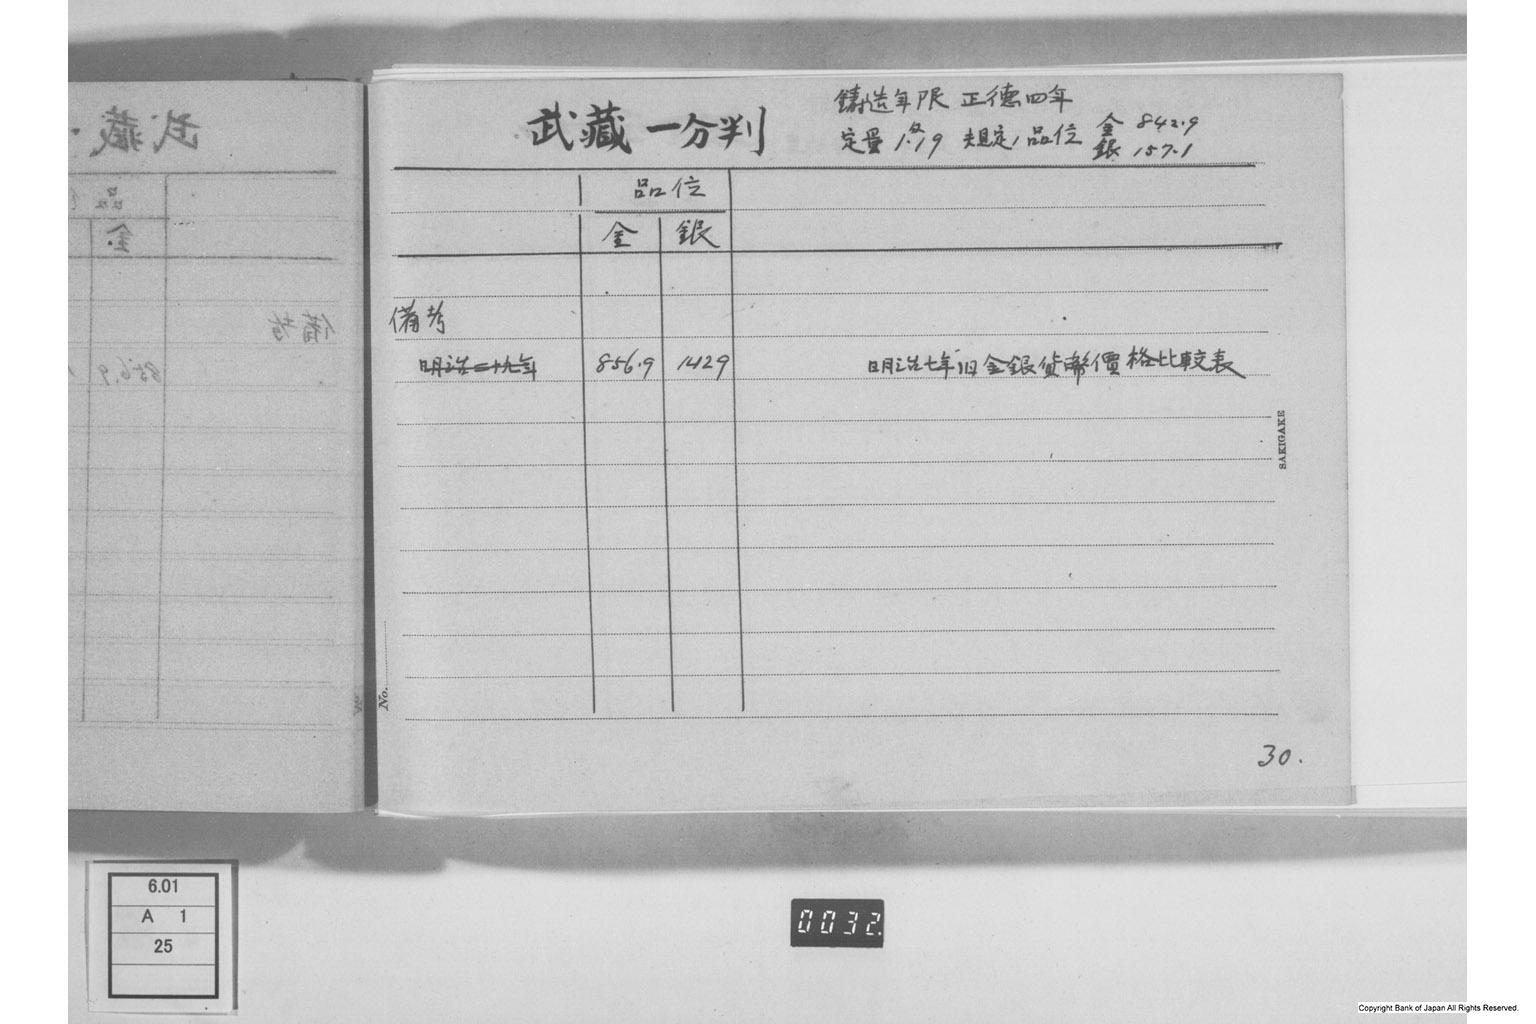 武藏一分判
鋳造年限 正德四年
定量 1.匁19 規定ノ品位 金 842.9
銀 157.1
品位
金 銀
備考
明治二十九年 856.9 142.9 明治七年旧金銀貨幣價格比較表
SAKIGAKE
No.
30.
6.01
A 1
25
0032.
Copyright Bank of Japan All Rights Reserved.